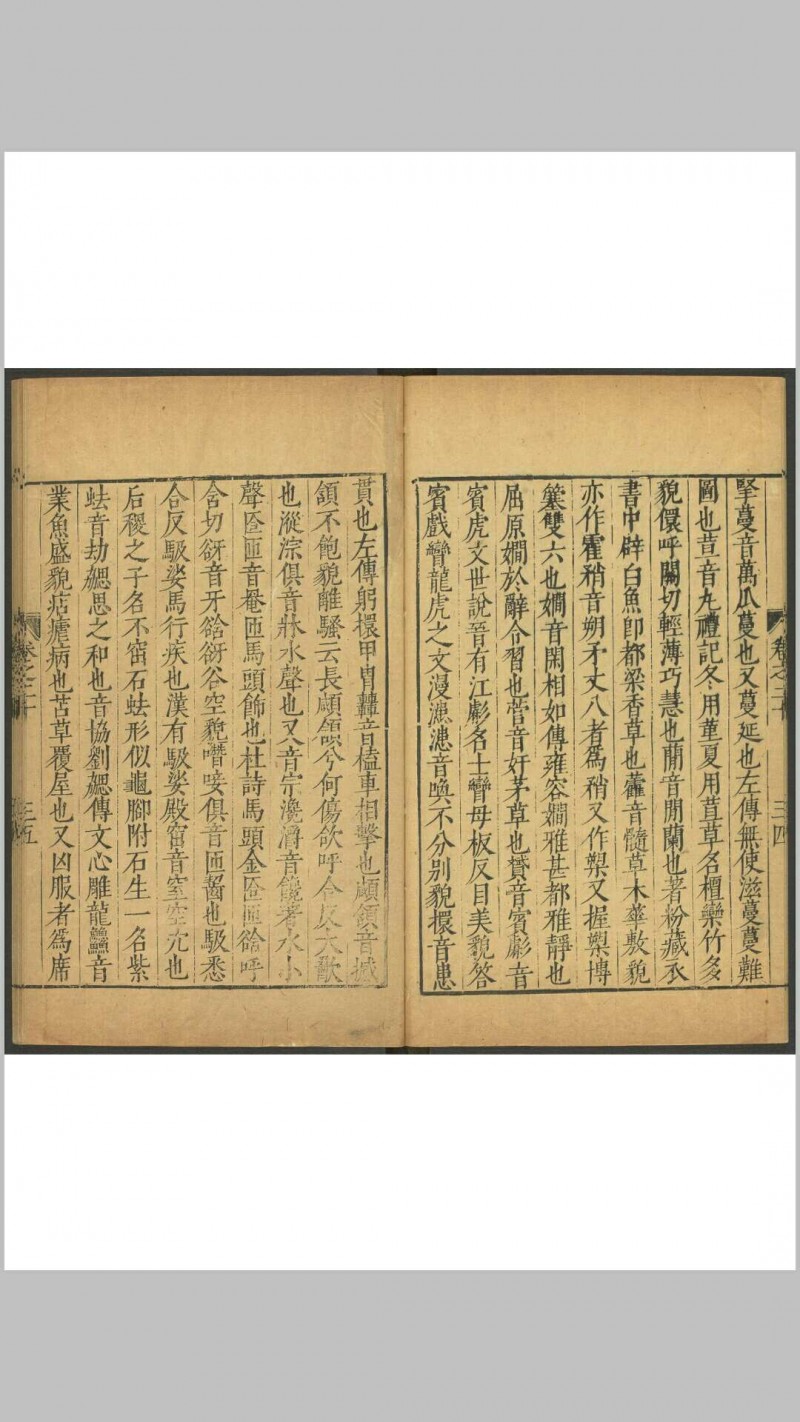 孯蔓音萬瓜蔓也又蔓延也左傳無使滋蔓蔓難
圖也荁音丸禮記冬用堇夏用荁草名檀欒竹多
貌儇呼關切輕薄巧慧也蕳音閒蘭也著粉藏衣
書中辟白魚卽都梁香草也蘳音髓草木華敷貌
亦作霍矟音朔矛丈八者爲矟又作槊又握槊博
簺雙六也嫺音閑相如傳雍容嫺雅甚都雅靜也
屈原嫺於辭令習也菅音奸茅草也贇音賓彪音
賓虎文世說晉有江彪名士䜌母板反目美貌答
賓戲䜌龍虎之文漫漶漶音喚不分別貌擐音患
卷之二十
三四
貫也左傳躬擐甲胄轞音榼車相擊也顑頷音
頷不飽貌離騷云長顑頷兮何傷欿呼合反大歠
也漎淙俱音牀水聲也又音宗瀺灂音
聲匼匝音菴匝馬頭飾也杜詩馬頭金匼匝谽呼
含切谺音牙谽谺谷空貌噆唼俱音匝齧也馺悉
合反馺娑馬行疾也漢有馺娑殿窋音窒空穴也
后稷之子名不窋石蚨形似龜腳附石生一名紫
蚨音劫勰思之和也音協劉勰傳文心雕龍鱻音
業魚盛貌痁瘧病也苫草覆屋也又凶服者爲席
卷之二十
三五